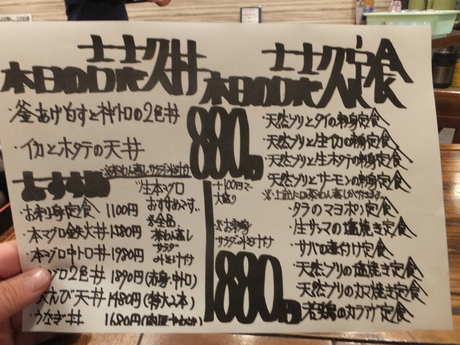 本日の日替丼
・釜あげしらすとネギトロの2色丼
・イカとホタテの天丼
880円
おすすめ
・お刺身定食 1100円
・本マグロ鉄火丼 1580円
・本マグロ中トロ丼 1980円
マグロ2色丼 1890円(赤身・中トロ)
天えび天丼 1480円(特大2本)
・うなぎ丼 1680円
・生本マグロ
おすすめです。
※全品
茶わん蒸し
サラダ
みそ汁付
+100円で
大盛り
本日の日替定食
・天然ブリとタイの刺身定食
・天然ブリと生イカの刺身定食
・天然ブリと生ホタテの刺身定食
・天然ブリとサーモンの刺身定食
・タラのマヨポン定食
・生サンマの塩焼き定食
・サバの味噌付け定食
・天然ブリの塩焼き定食
・天然ブリのカマ焼き定食
・若鶏のカラアゲ定食
※お味噌汁
サラダ
880円